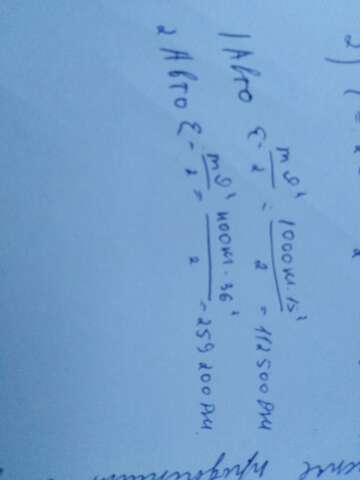 2) 
1 Авто E = mv²/2 = 1000кг·15²/2 = 112500 Дж
2 Авто E = mv²/2 = 400кг·36²/2 = 259200 Дж